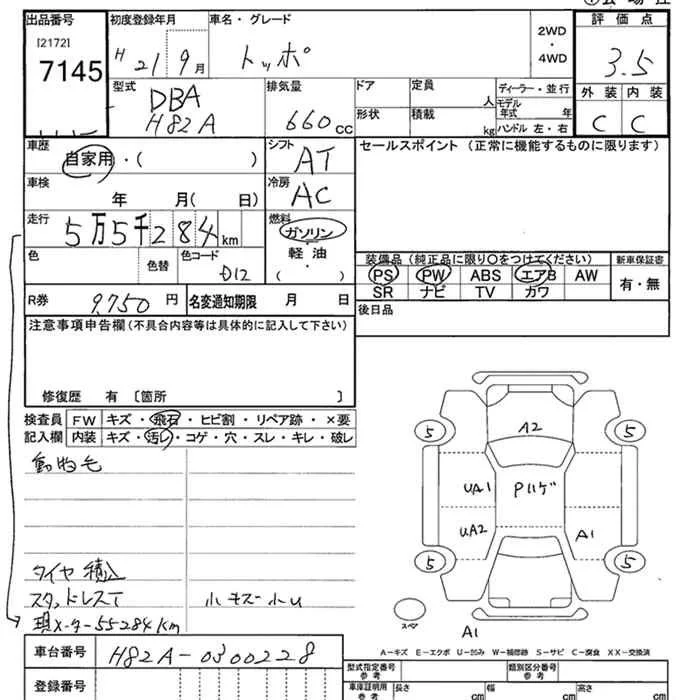 出品番号 初度登録年月 車名・グレード 2WD・4WD 評価点
[2172]
7145 H 21 9月 トッポ 3.5
型式 排気量 ドア 定員 人 ディーラー・並行 外装 内装
DBA H82A 660cc 形状 積載 kg モデル年式 年 ハンドル 左・右 C C
車歴 自家用・( ) シフト AT セールスポイント (正常に機能するものに限ります)
車検 年 月( 日) 冷房 AC
走行 5万5千284km 燃料 ガソリン・軽油・( )
色 色替 色コード D12
装備品(純正品に限り○をつけてください) 新車保証書
PS PW ABS エアB AW 有・無
SR ナビ TV カワ
R券 9,750円 名変通知期限 月 日 後日品
注意事項申告欄(不具合内容等は具体的に記入して下さい)
修復歴 有 〔箇所 〕
検査員 FW キズ・飛石・ヒビ割・リペア跡・×要
記入欄 内装 キズ・汚レ・コゲ・穴・スレ・キレ・破レ
動物毛
タイヤ積込
スタッドレスT 小キズ小U
現メーター55284km
5 5
A2
UA1 Pハゲ
UA2 A1
5 5
スペア
A1
A-キズ E-エクボ U-凹み W-補修跡 S-サビ C-腐食 XX-交換済
車台番号 H82A-0300228
型式指定番号 参考 類別区分番号 参考
登録番号 車庫証明用 参考 長さ cm 幅 cm 高さ cm